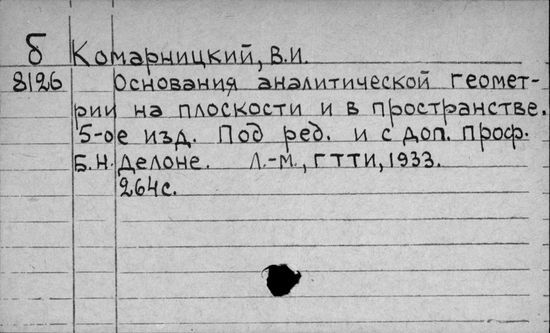 б Комарницкий, В.И.
8126 Основания аналитической геомет-
рии на плоскости и в пространстве.
5-ое изд. Под ред. и с доп. проф.
Б.Н. Делоне. Л.-М., ГТТИ, 1933.
264с.